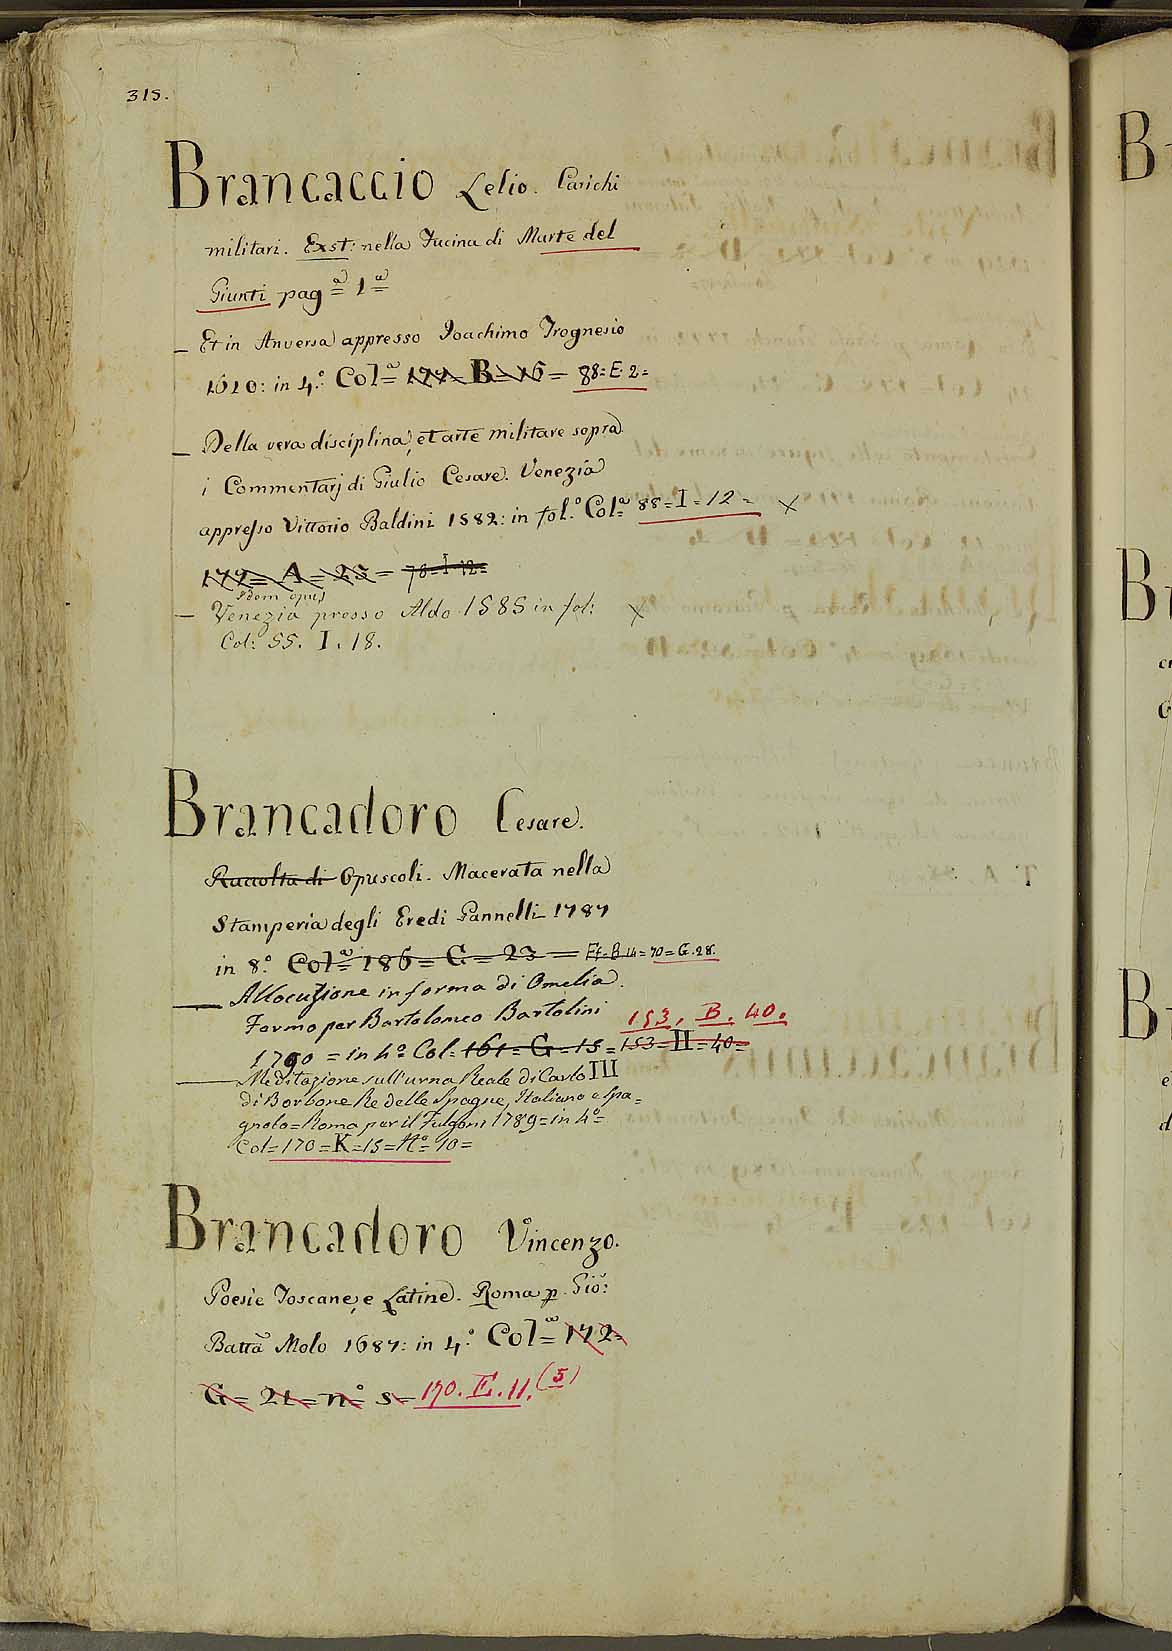 315.
Brancaccio Lelio. Carichi
militari. Exst: nella Fucina di Marte del
Giunti pagª 1ª
_ Et in Anversa appresso Joachimo Trognesio
1610: in 4.º Colª 177 B=16 = 88=E·2=
_ Della vera disciplina, et arte militare sopra
i Commentarj di Giulio Cesare. Venezia
appresso Vittorio Baldini 1582: in fol.º Colª 88=I=12= X
177= A=25= 78=I·12=
Idem opus
_ Venezia presso Aldo 1585 in fol: X
Col: 55. I. 18.
Brancadoro Cesare.
Raccolta di Opuscoli. Macerata nella
Stamperia degli Eredi Pannelli 1787
in 8.º Colª 186= G=23= =70=G.28.
_ Allocuzione in forma di Omelia.
Fermo per Bartolomeo Bartolini 153, B. 40.
1790 = in 4º Col= 161=G=15=153=H=40=
_ Meditazione sull'urna Reale di Carlo III
di Borbone Re delle Spagne, Italiano e Spa=
gnolo=Roma per il Fulgoni 1789=in 4º=
Col=170=K=15=Nº=10=
Brancadoro Vincenzo.
Poesie Toscane, e Latine. Roma p. Gio:
Batta Molo 1687: in 4.º Colª 172=
G= 21=nº 5= 170. E. 11. (5)